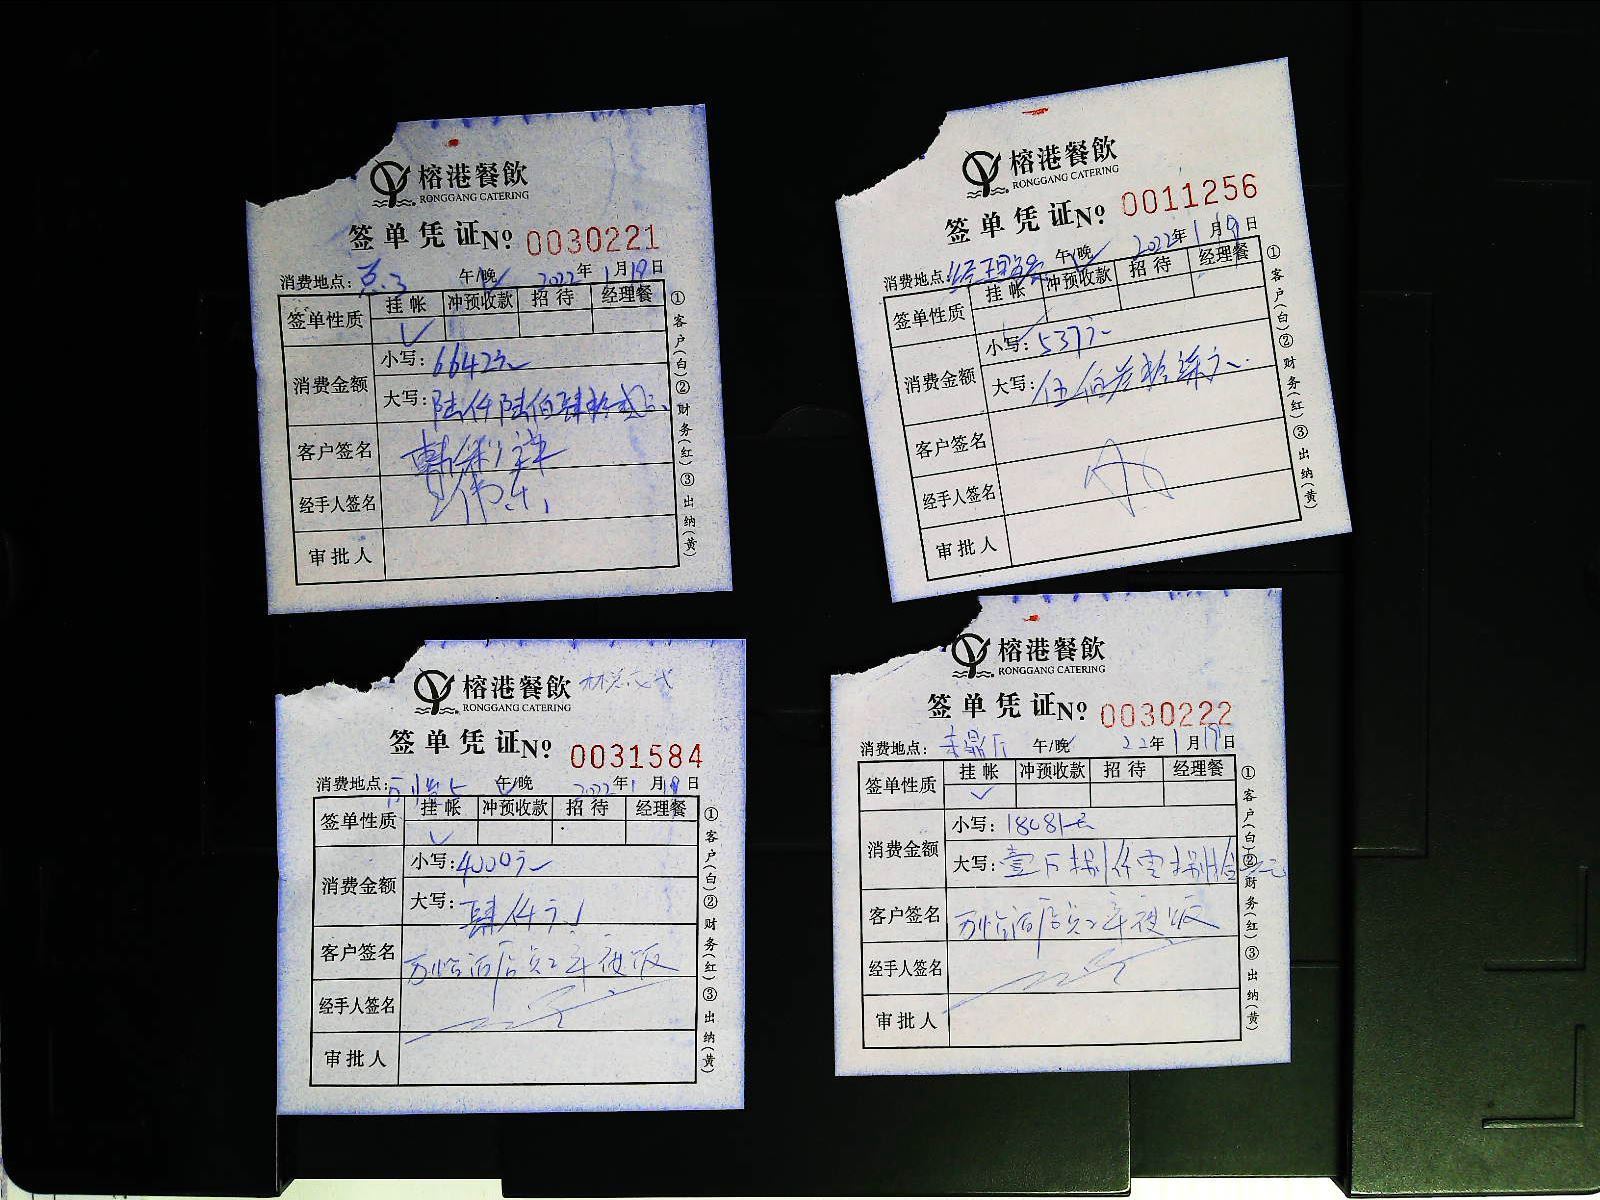 榕港餐飲
RONGGANG CATERING
签单凭证 Nº 0030221
消费地点: 午/晚 2022年1月19日
签单性质 挂帐 冲预收款 招待 经理餐
✓
消费金额 小写: 6642元
大写: 陆仟陆佰肆拾贰元
客户签名
经手人签名
审批人
①客户(白)②财务(红)③出纳(黄)
榕港餐飲
RONGGANG CATERING
签单凭证 Nº 0011256
消费地点: 午/晚 2022年1月19日
签单性质 挂帐 冲预收款 招待 经理餐
✓
消费金额 小写: 537元
大写: 伍佰叁拾柒元
客户签名
经手人签名
审批人
①客户(白)②财务(红)③出纳(黄)
榕港餐飲
RONGGANG CATERING
签单凭证 Nº 0031584
消费地点: 午/晚 2022年1月日
签单性质 挂帐 冲预收款 招待 经理餐
✓
消费金额 小写: 4000元
大写: 肆仟元
客户签名 万怡酒店员工年夜饭
经手人签名
审批人
①客户(白)②财务(红)③出纳(黄)
榕港餐飲
RONGGANG CATERING
签单凭证 Nº 0030222
消费地点: 午/晚 22年1月19日
签单性质 挂帐 冲预收款 招待 经理餐
✓
消费金额 小写: 18081元
大写: 壹万捌仟零捌拾壹元
客户签名 万怡酒店员工年夜饭
经手人签名
审批人
①客户(白)②财务(红)③出纳(黄)